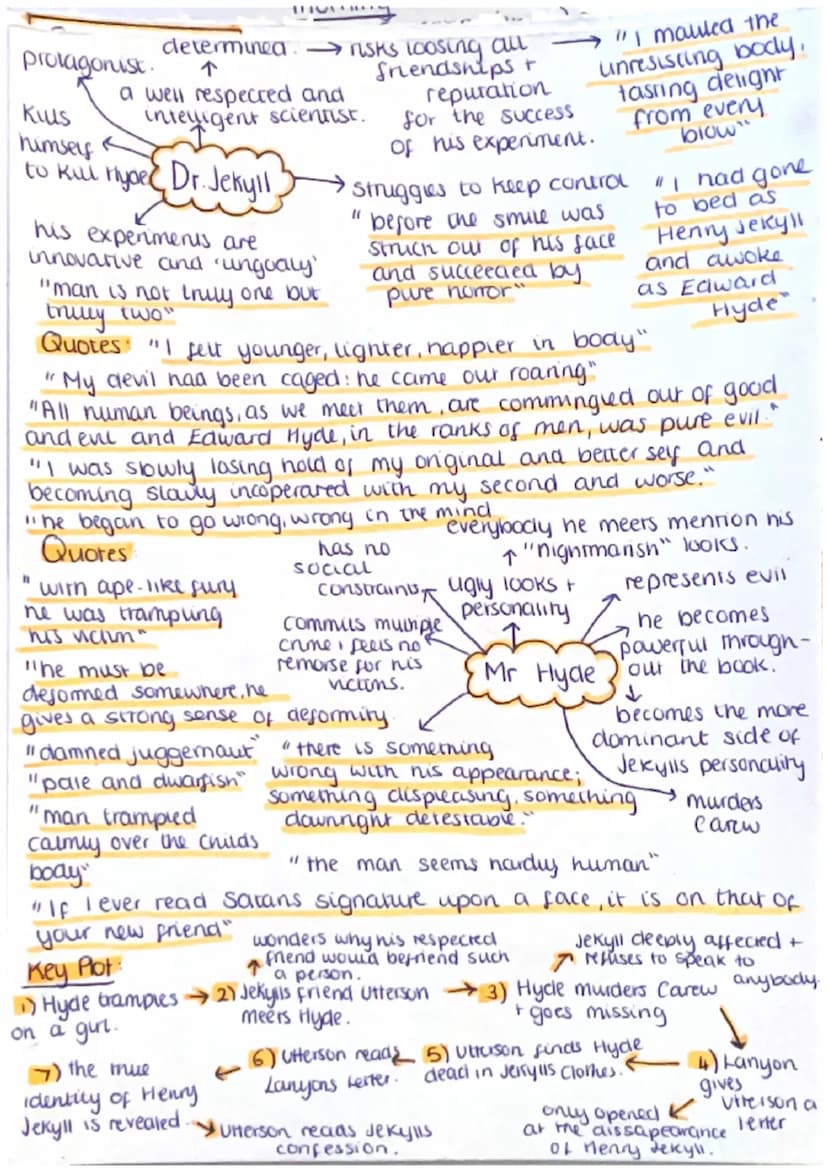 protagonist.
determined. → risks loosing all
friendships +
reputation
for the success
of his experiment.
→ "I mauled the
unresisting body,
tasting delight
from every
blow"
a well respected and
intelligent scientist.
Kills
himself
to kill Hyde
Dr. Jekyll
struggles to keep control
"before the smile was
struck out of his face
and succeeded by
pure horror"
"I had gone
to bed as
Henry Jekyll
and awoke
as Edward
Hyde"
his experiments are
innovative and 'ungodly'
"man is not truly one but
truly two"
Quotes: "I felt younger, lighter, happier in body"
"My devil had been caged: he came out roaring"
"All human beings, as we meet them, are commingled out of good
and evil and Edward Hyde, in the ranks of men, was pure evil."
"I was slowly losing hold of my original and better self and
becoming slowly incoperated with my second and worse."
"he began to go wrong, wrong in the mind
Quotes
"with ape-like fury
he was trampling
his victim"
"he must be
deformed somewhere, he
gives a strong sense of deformity
"damned juggernaut"
"pale and dwarfish"
"man trampled
calmly over the childs
body"
has no
social
constraints
everybody he meets mention his
"nightmarish" looks.
ugly looks +
personality
represents evil
commits multiple
crime + feels no
remorse for his
victims.
Mr Hyde
he becomes
powerful through-
out the book.
becomes the more
dominant side of
Jekylls personality
murders
Carew
"there is something
wrong with his appearance;
something displeasing, something
downright detestable."
"the man seems hardly human"
"If I ever read Satans signature upon a face, it is on that of
your new friend"
Key Plot:
1) Hyde tramples
on a girl.
→ 2) Jekylls friend Utterson
meets Hyde.
wonders why his respected
friend would befriend such
a person.
→ 3) Hyde murders Carew
+ goes missing
Jekyll deeply affected +
refuses to speak to
anybody.
4) Lanyon
gives
Utterson a
letter
only opened
at the dissapearance
of Henry Jekyll.
5) Utterson finds Hyde
dead in Jekylls clothes.
6) Utterson reads
Lanyons letter.
7) the true
identity of Henry
Jekyll is revealed
Utterson reads Jekylls
confession.